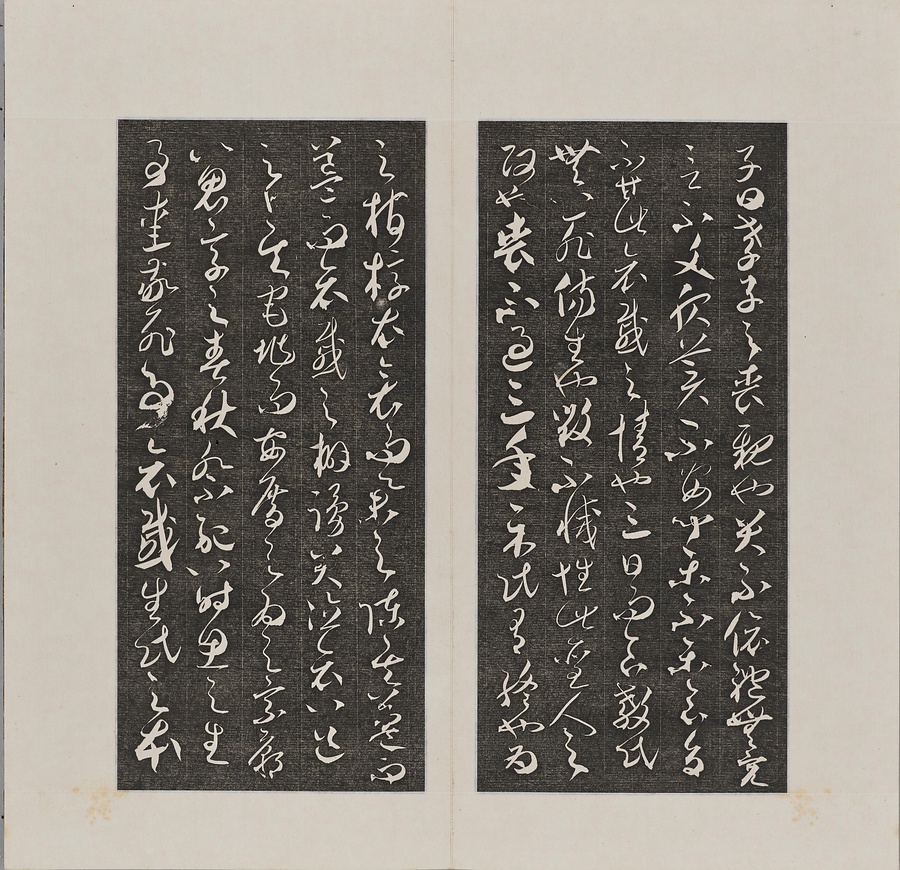 子曰孝子之喪親也哭不依禮無容
言不文服美不安聞樂不樂食旨
不甘此哀戚之情也三日而食教民
無以死傷生也毀不滅性此聖人之
政也喪不過三年示民有終也為
之棺椁衣衾而舉之陳其簠而
簋而哀戚之擗踴哭泣哀以送
之卜其宅兆而安厝之為之宗廟
以鬼享之春秋祭祀以時思之生
事愛敬死事哀戚生民之本